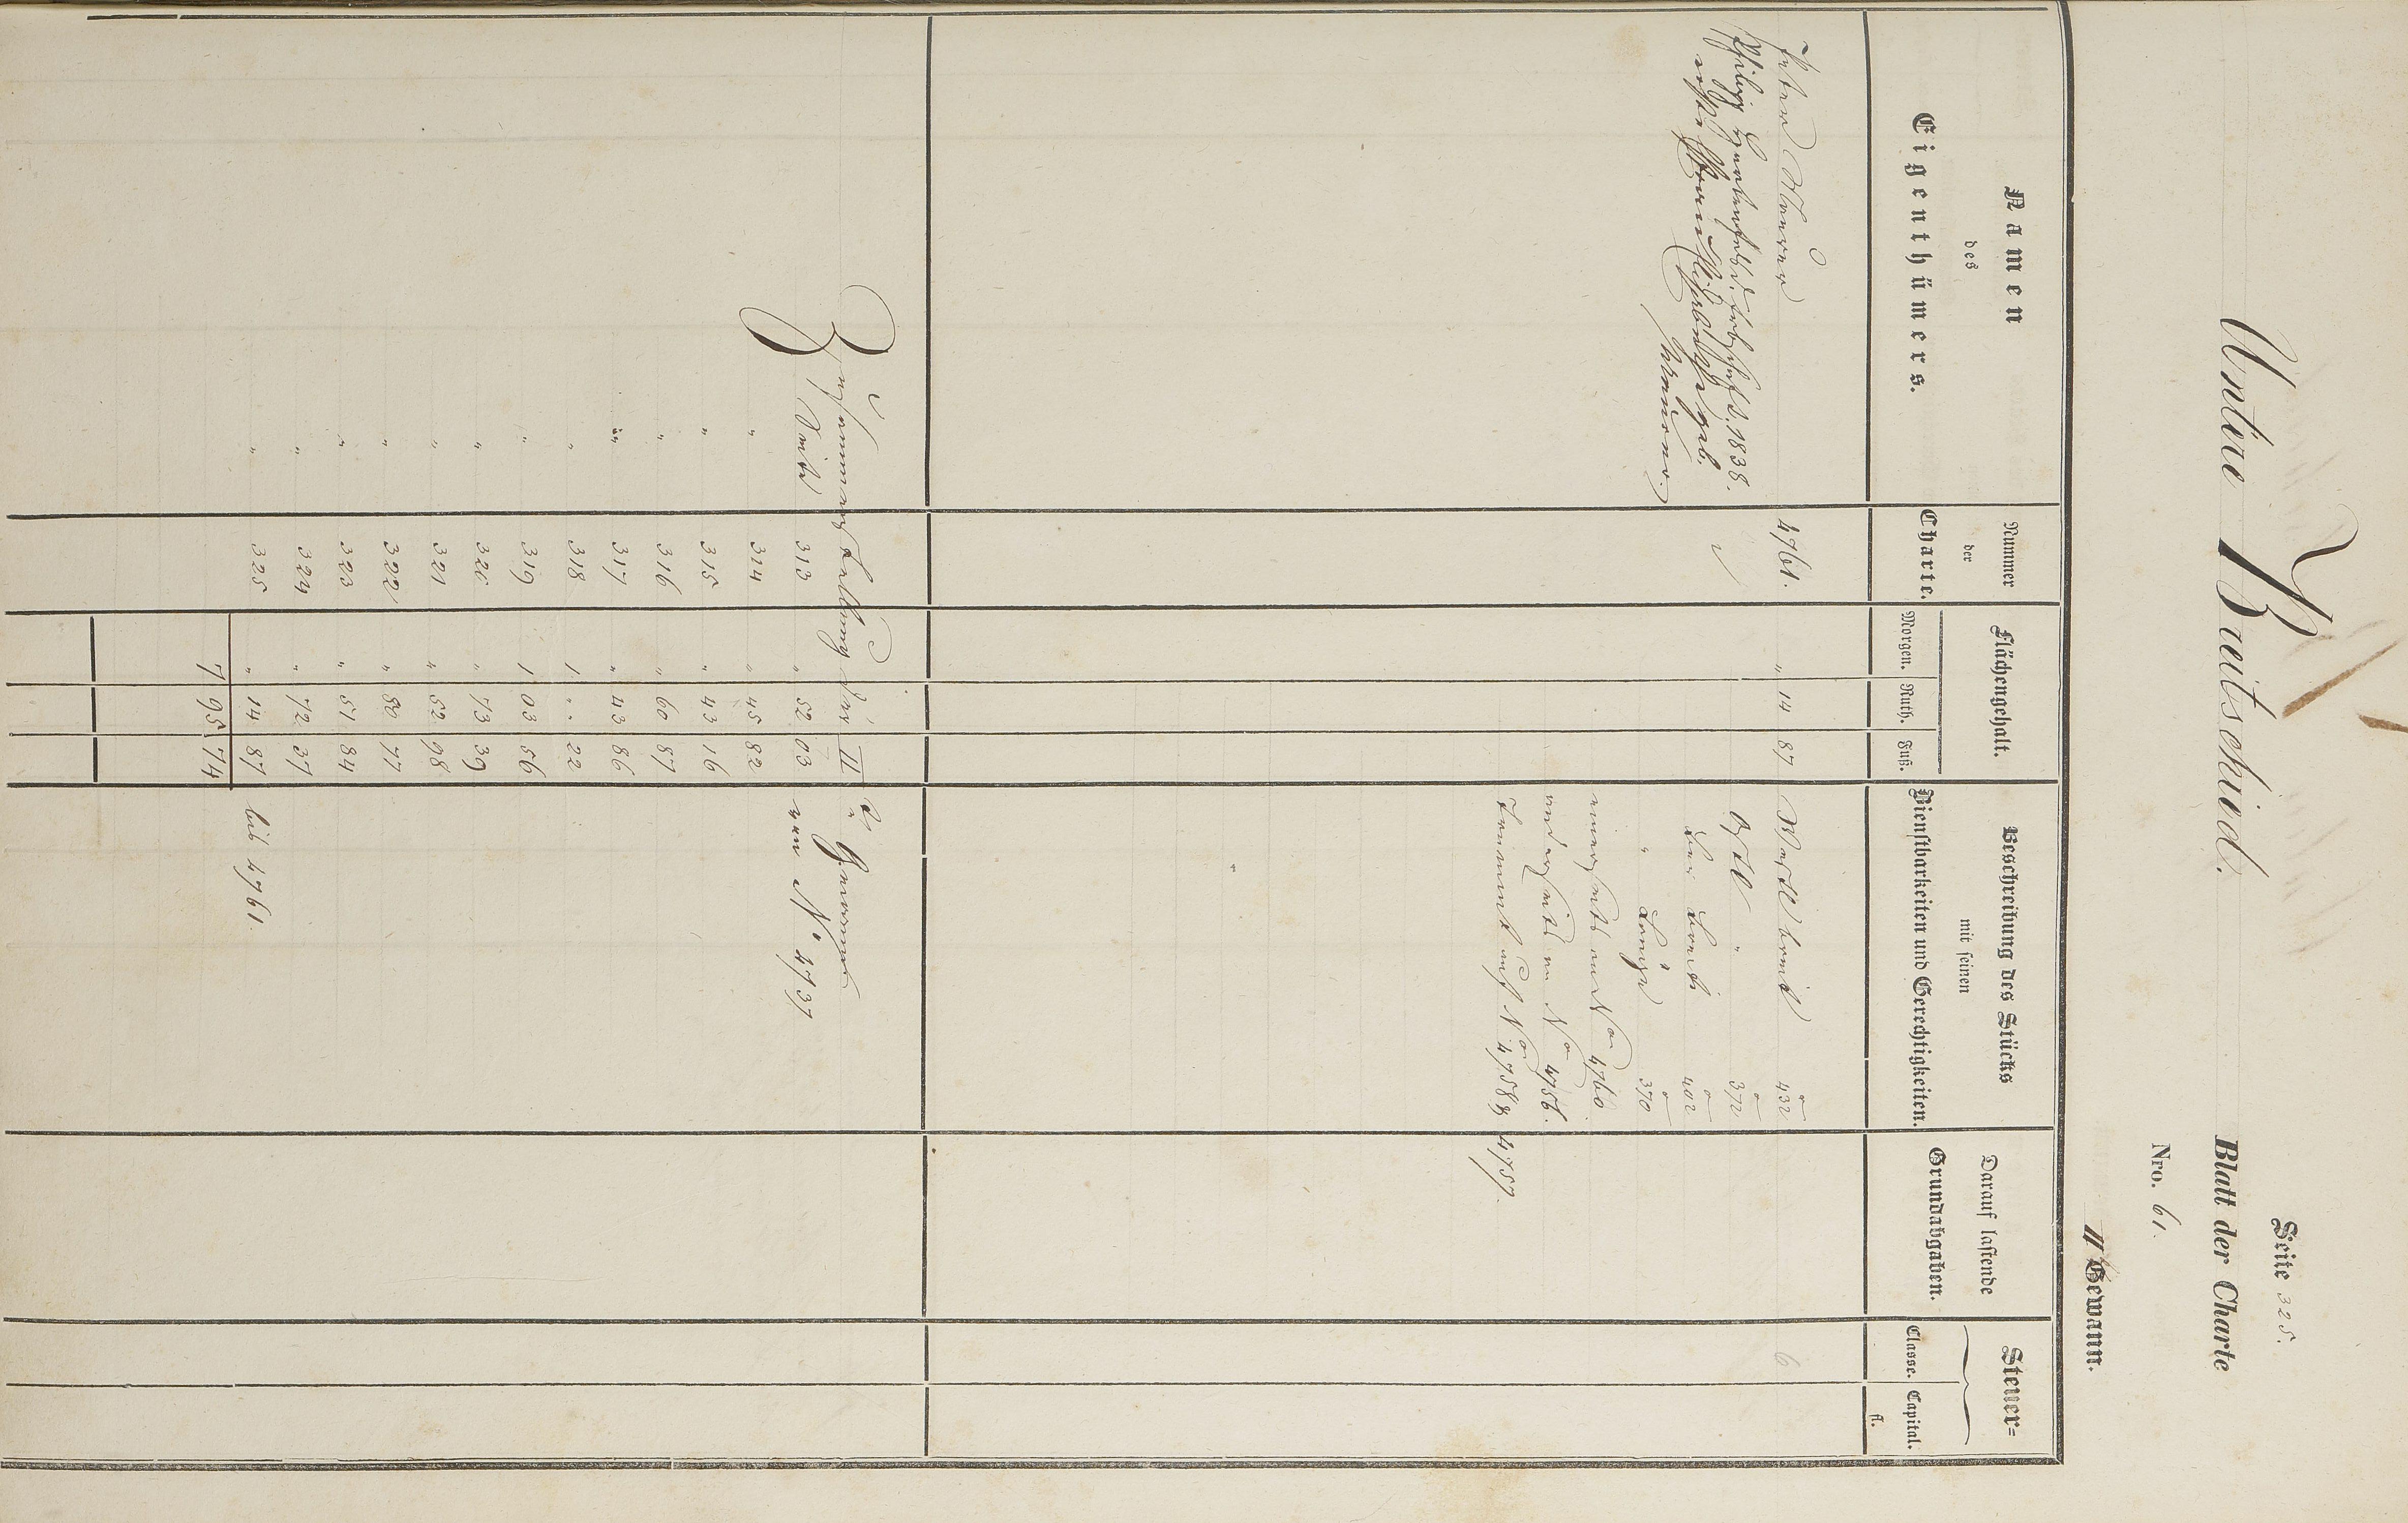 Seite 325.
Untere Braitschied.
Blatt der Charte
Nro. 61.
II Gewann.
Namen
des
Eigenthümers.
Nummer
der
Charte.
Flächengehalt.
Morgen. Ruth. Fuß.
Beschreibung des Stücks
mit seinen
Dienstbarkeiten und Gerechtigkeiten.
Darauf lastende
Grundabgaben.
Steuer=
Classe. Capital.
fl.
Peter 4761. " 14 87 breit 432 6
Philipp 1838. " 372
geb. breit 402
" Länge 370
einerseits an No 4760.
anderseits an No 4756.
auf No 4758 & 4759.
Zusammenstellung der II n Gewann
Seite 313 " 52 03 von No 4737
" 314 " 45 82
" 315 " 43 16
" 316 " 60 87
" 317 " 43 86
" 318 1 .. 22
" 319 1 03 56
" 320 " 73 39
" 321 " 52 98
" 322 " 80 77
" 323 " 51 84
" 324 " 72 37
" 325 " 14 87 bis 4761.
7 95 74